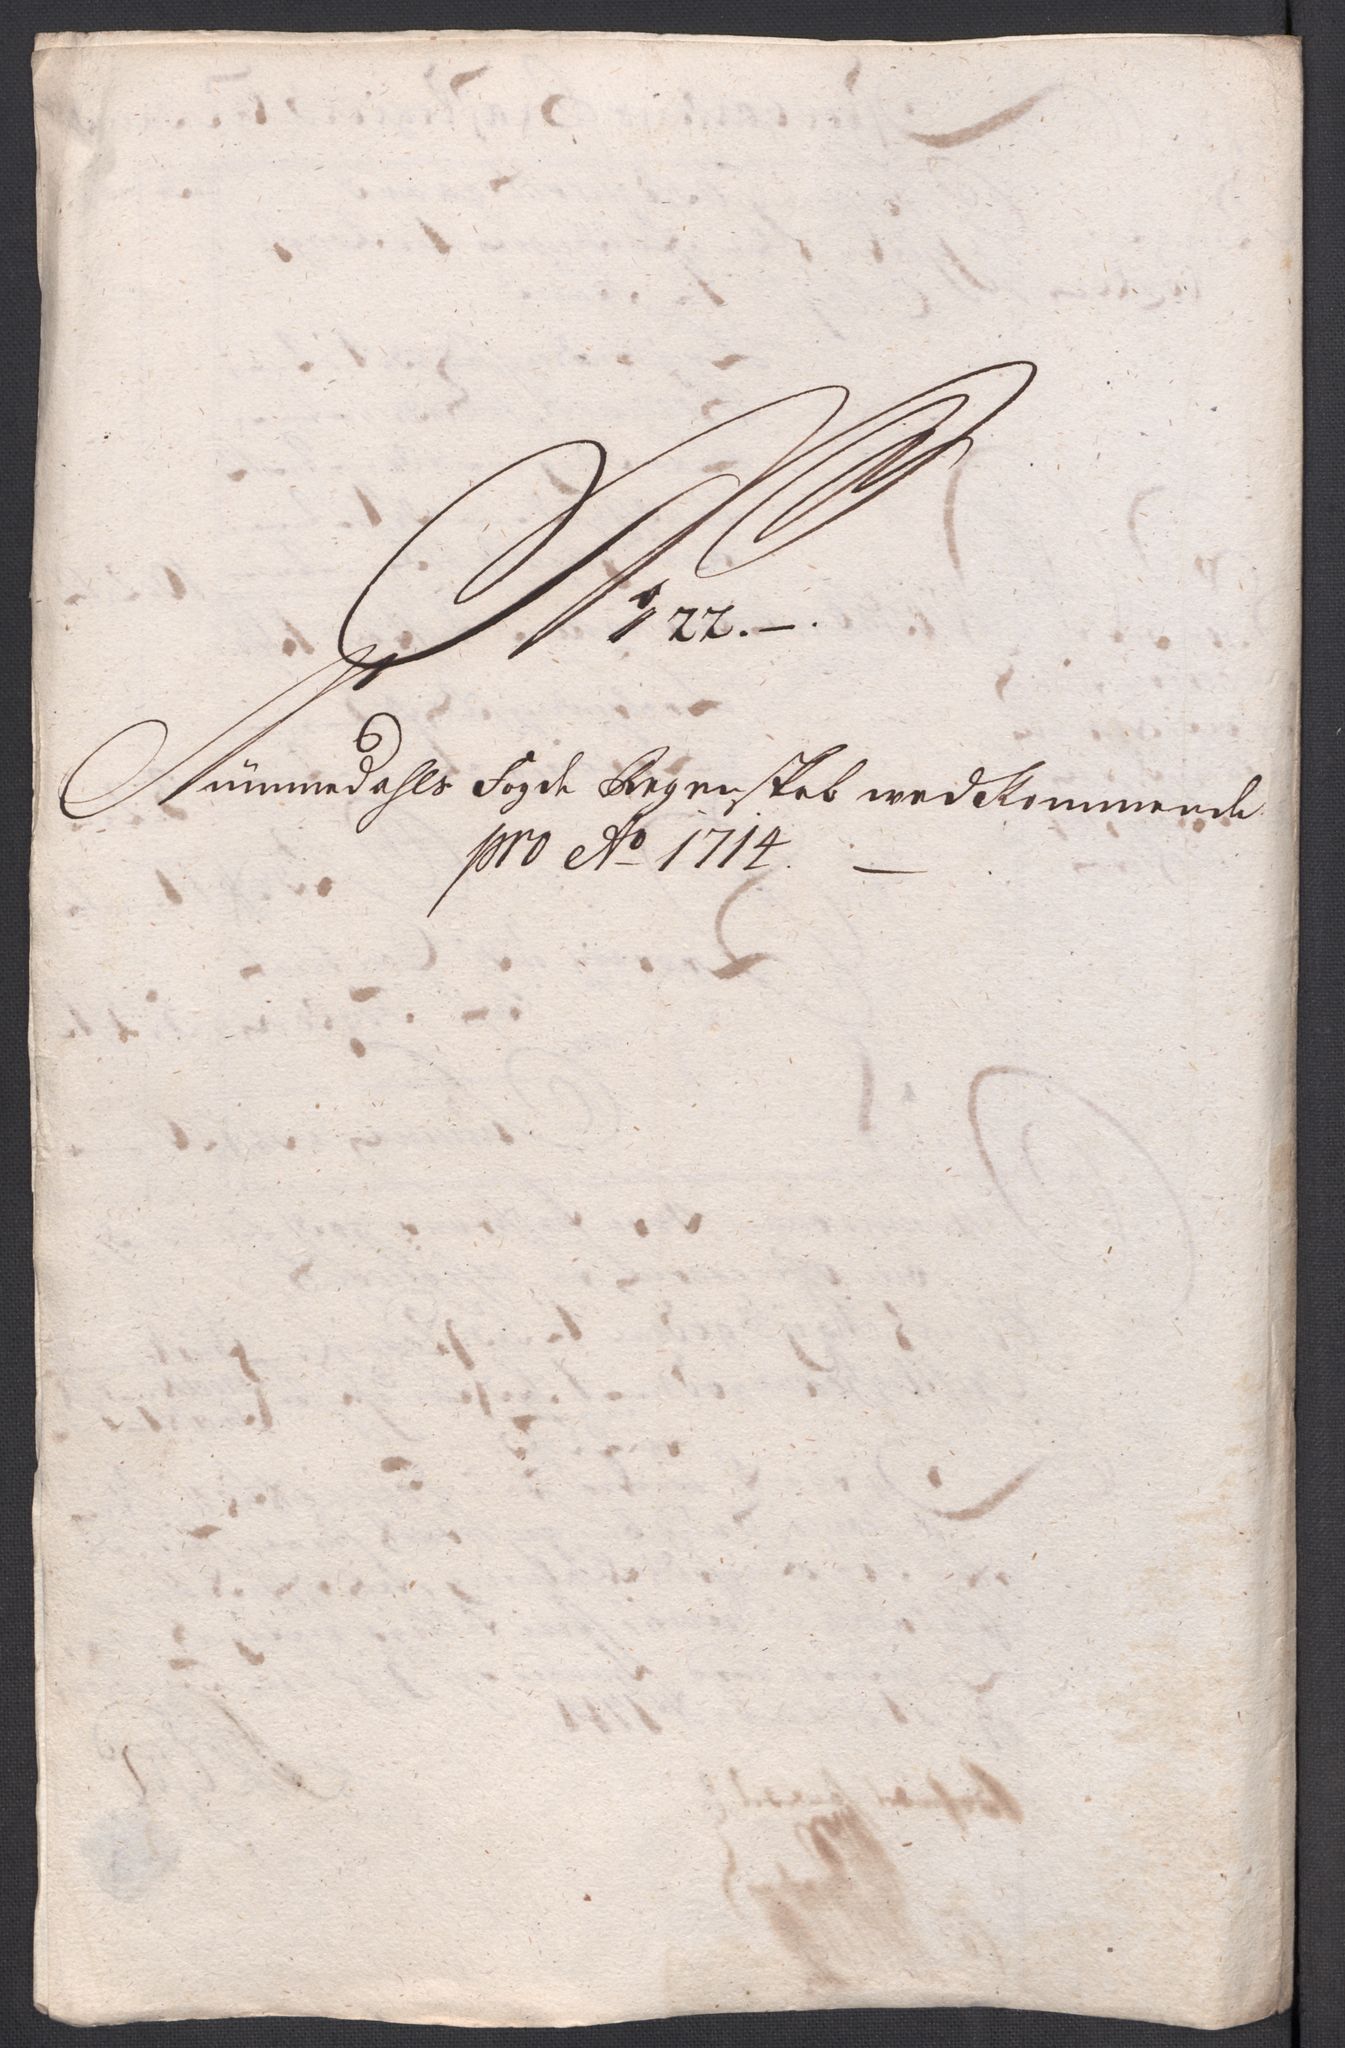 No 22.
Nummedahls Fogde Regenskab wedkommende
pro Ao 1714.